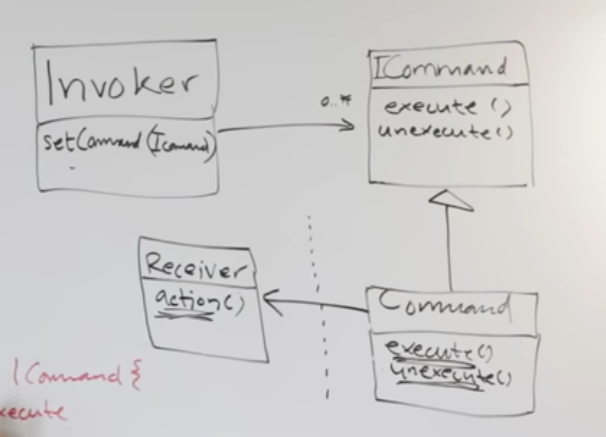 Invoker
setCommand(Icomand)
0..*
ICommand
execute()
unexecute()
Receiver
action()
Command
execute()
unexecute()
ICommand {
execute